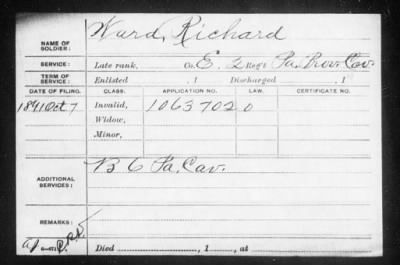 NAME OF SOLDIER: Ward, Richard
SERVICE: Late rank, Co. E, 2 Reg't Pa. Prov. Cav.
TERM OF SERVICE: Enlisted , 1 Discharged , 1
DATE OF FILING. CLASS. APPLICATION NO. LAW. CERTIFICATE NO.
1891 Oct 7 Invalid, 1063702 0
Widow,
Minor,
ADDITIONAL SERVICES: B 6 Pa. Cav.
REMARKS:
Died , 1 , at